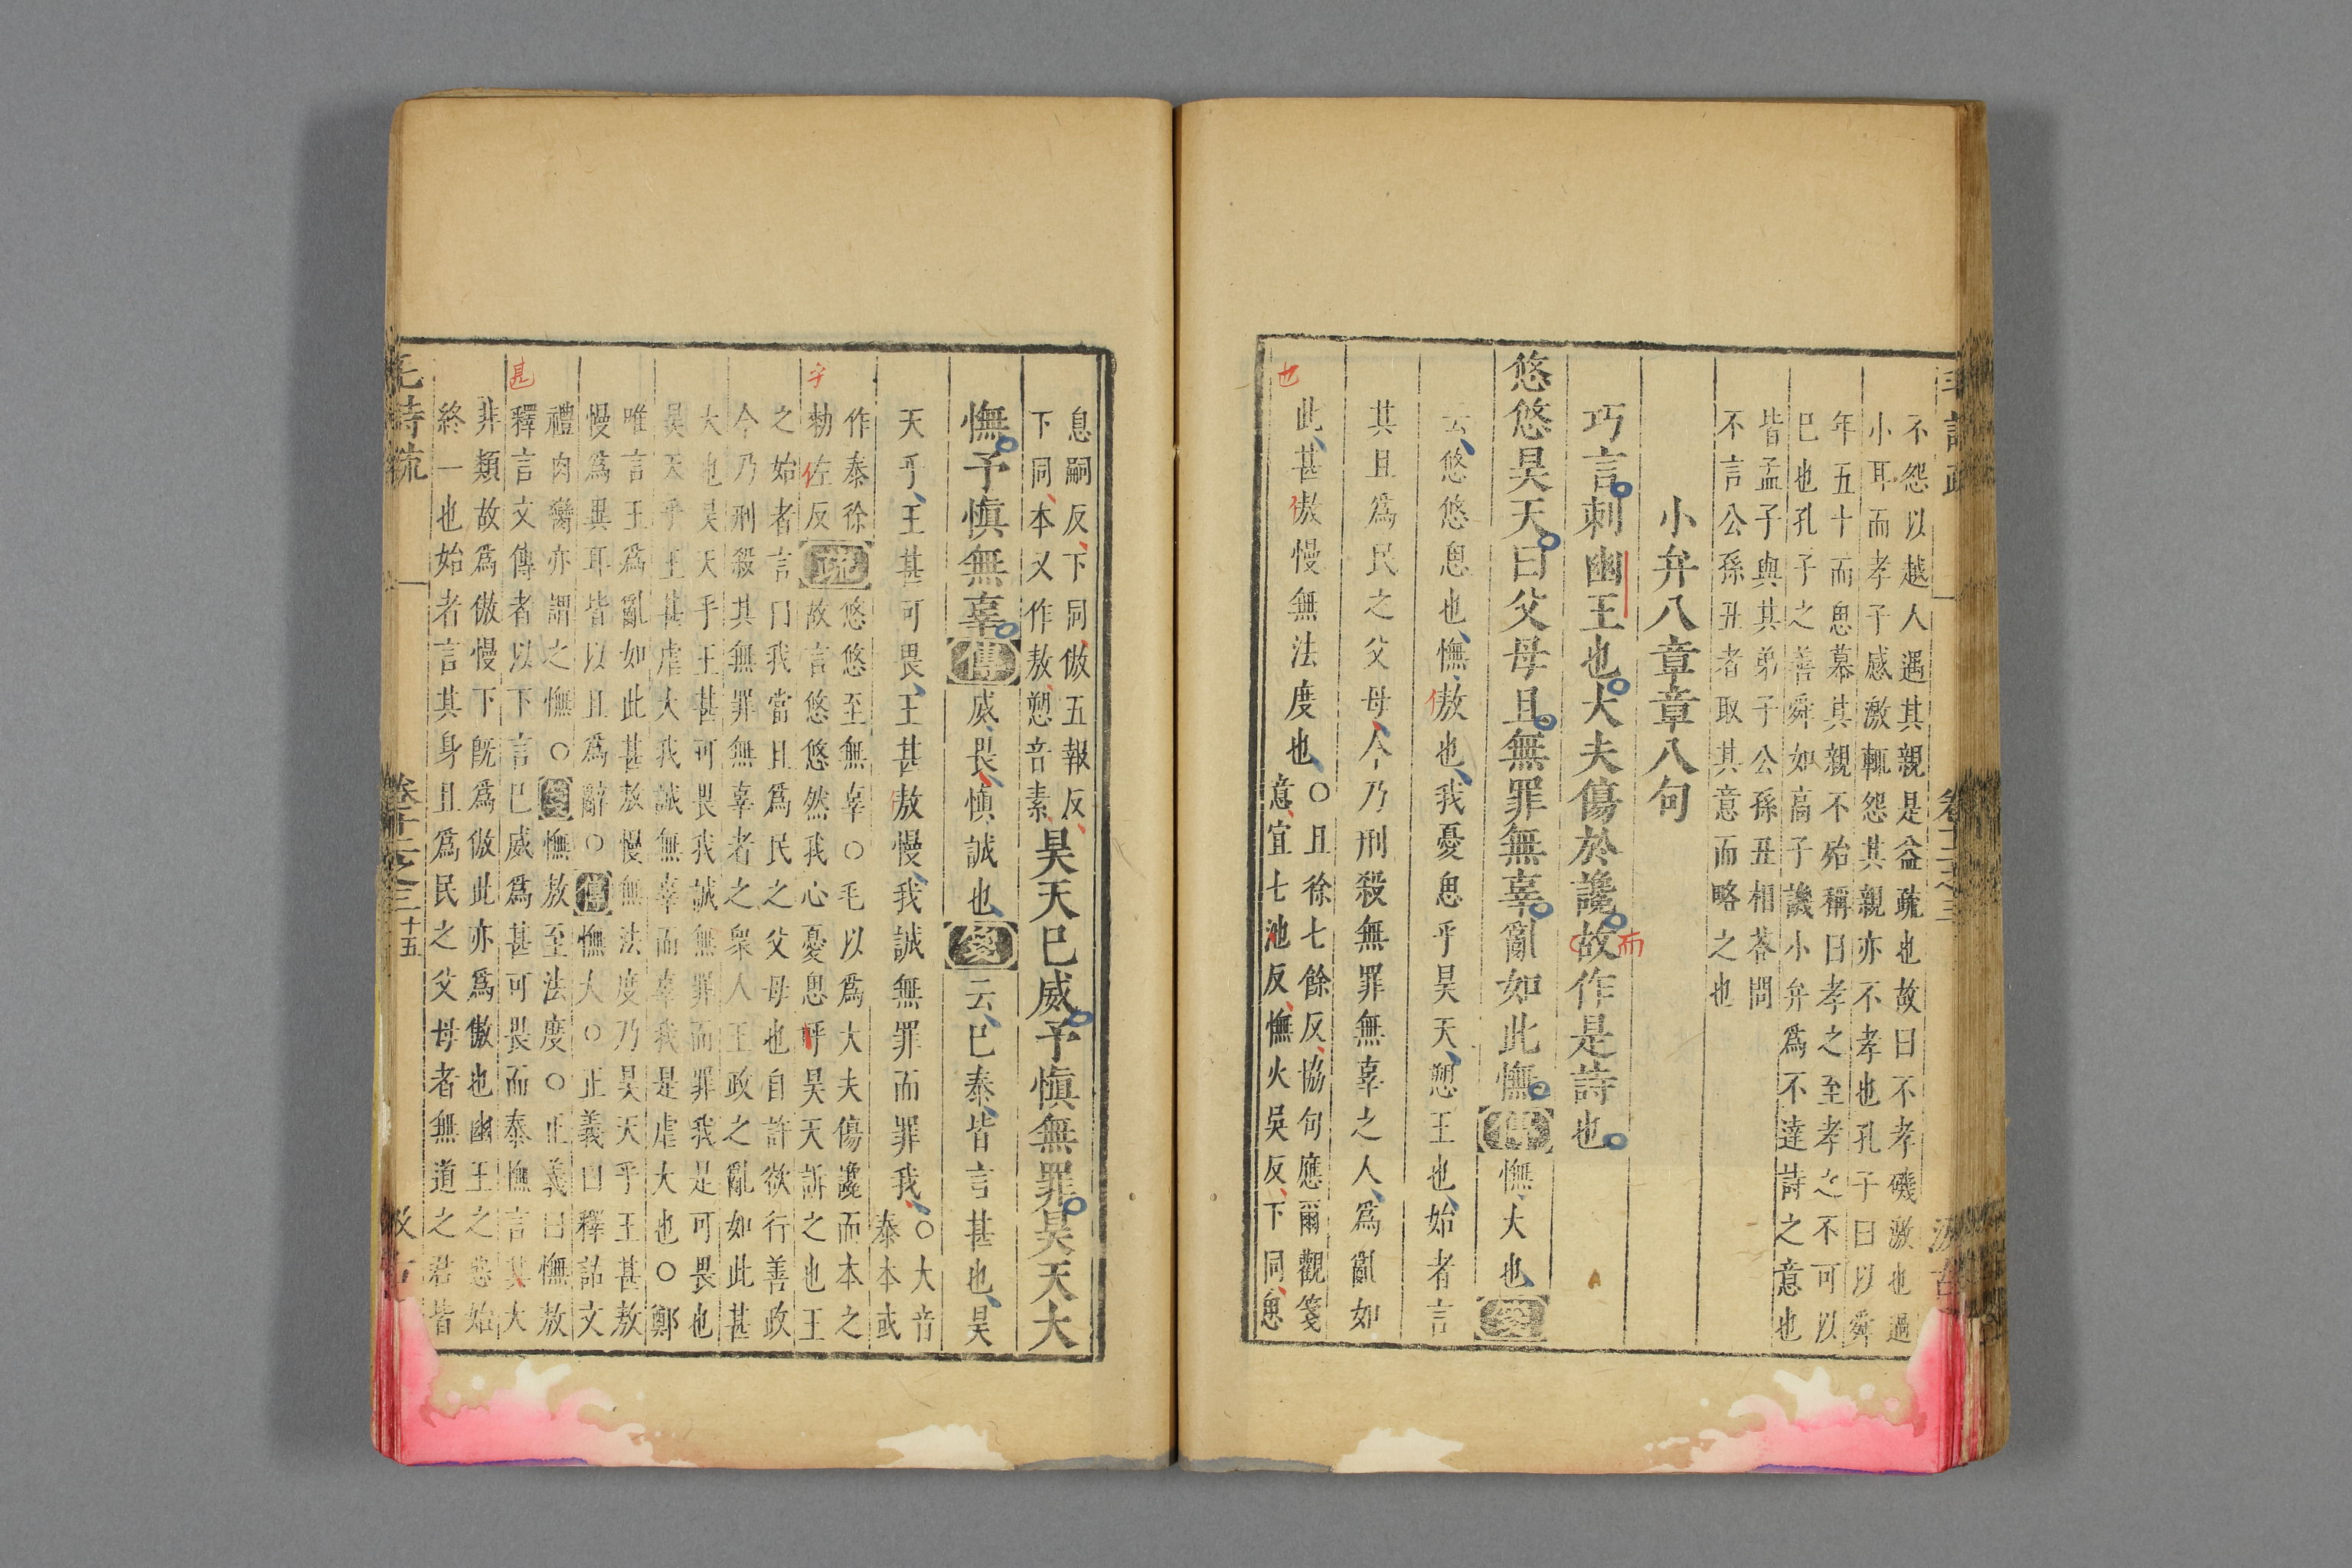 不怨以越人遇其親是益疏也故曰不孝磯激也過
小耳而孝子感激輒怨其親亦不孝也孔子曰以舜
年五十而思慕其親不殆稱曰孝之至孝之不可以
巳也孔子之善舜如高子譏小弁爲不達詩之意也
皆孟子與其弟子公孫丑相荅問
不言公孫丑者取其意而略之也
小弁八章章八句
巧言刺幽王也大夫傷於讒故作是詩也
而
悠悠昊天曰父母且無罪無辜亂如此憮傳憮大也箋
云悠悠思也憮敖也我憂思乎昊天愬王也始者言
其且爲民之父母今乃刑殺無罪無辜之人爲亂如
也
此甚傲慢無法度也○且徐七餘反協句應爾觀箋
意宜七池反憮火吳反下同思
息嗣反下同傲五報反
下同本又作敖愬音素昊天巳威予愼無罪昊天大
憮予愼無辜傳威畏愼誠也箋云巳泰皆言甚也昊
天乎王甚可畏王甚敖慢我誠無罪而罪我○大音
泰本或
作泰徐
字
勑佐反疏悠悠至無辜○毛以爲大夫傷讒而本之
故言悠悠然我心憂思乎昊天訴之也王
之始者言曰我當且爲民之父母也自許欲行善政
今乃刑殺其無罪無辜者之衆人王政之亂如此甚
大也昊天乎王甚可畏我誠無罪而罪我是可畏也
昊天乎王甚虐大我誠無辜而辜我是虐大也○鄭
唯言王爲亂如此甚敖慢無法度乃昊天乎王甚敖
慢爲異耳皆以且爲辭○傳憮大○正義曰釋詁文
禮肉臠亦謂之憮○箋憮敖至法度○正義曰憮敖
甚
釋言文傳者以下言巳威爲甚可畏而泰憮言其大
非類故爲傲慢下旣爲傲此亦爲傲也幽王之惡始
終一也始者言其身且爲民之父母者無道之君皆
毛詩疏 卷十二之三 十五